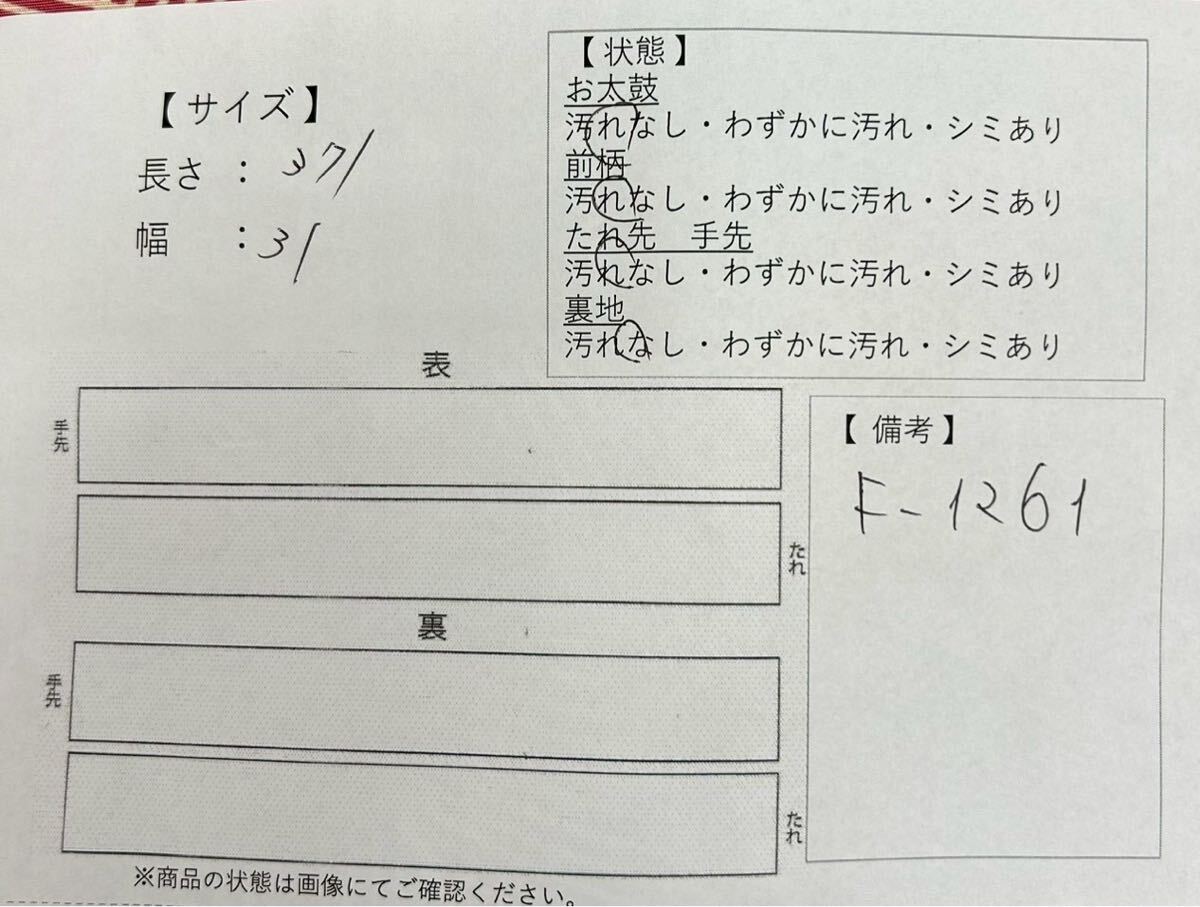 【サイズ】
長さ ： 371
幅 ： 31
【状態】
お太鼓
汚れなし・わずかに汚れ・シミあり
前柄
汚れなし・わずかに汚れ・シミあり
たれ先 手先
汚れなし・わずかに汚れ・シミあり
裏地
汚れなし・わずかに汚れ・シミあり
表
手先
たれ
裏
手先
たれ
【備考】
F-1261
※商品の状態は画像にてご確認ください。